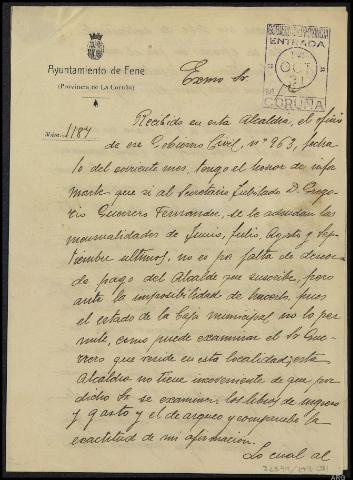 GOBIERNO DE PROVINCIA
ENTRADA
OCT
21
M
CORUÑA
Ayuntamiento de Fene
(Provincia de LA CORUÑA)
Núm. 1184
Exmo Sr
Recibido en esta Alcaldia, el oficio
de ese Gobierno Civil, nº 963, fecha
10 del corriente mes, tengo el honor de infor
marle que si al Secretario Jubilado D. Grego
rio Guerrero Fernandez, se le adeudan las
mensualidades de Junio, Julio, Agosto y Sep-
tiembre ultimos, no es por falta de deseo
do pago del Alcalde que suscribe, pero
ante la imposibilidad de hacerlo, pues
el estado de la Caja municipal no lo per
mite, como puede examinar el Sr Gue-
rrero que reside en esta localidad; esta
Alcaldia no tiene inconveniente de que por
dicho Sr se examinen los libros de ingreso
y gasto y el de arqueo y compruebe la
exactitud de mi afirmación.
Lo cual al